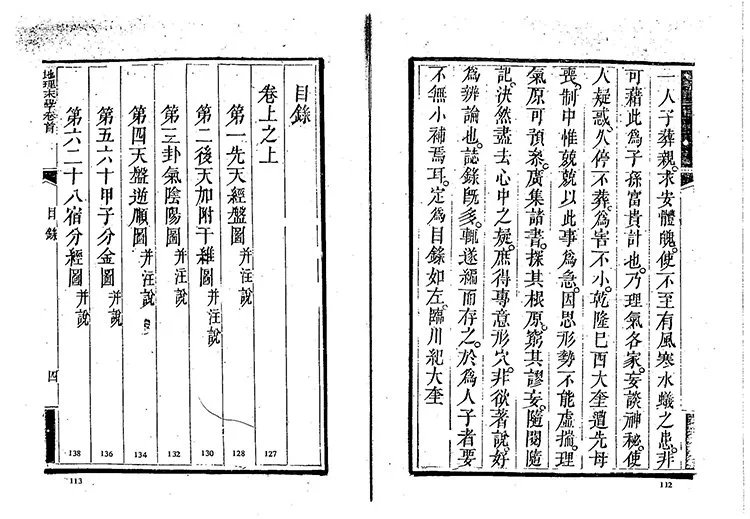 一人子葬親。求安體魄。使不至有風寒水蟻之患。非
可藉此為子孫富貴計也。乃理氣各家。妄談神秘。使
人疑惑。久停不葬。為害不小。乾隆己酉大奎遭先母
喪。制中惟兢兢以此事為急。因思形勢不能虛揣。理
氣原可預叅。廣集諸書。探其根原。窮其謬妄。隨閱隨
記。決然盡去心中之疑。庶得專意形穴。非欲著說。好
為辨論也。誌錄既多。輒遂編而存之。於為人子者。要
不無小補焉耳。定為目錄如左。臨川紀大奎
112
地理末學卷首
目錄
四
目錄
卷上之上
127
第一先天經盤圖 并注說
128
第二後天加附干維圖 并注說
130
第三卦氣陰陽圖 并注說
132
第四天盤逆順圖 并注說
134
第五六十甲子分金圖 并說
136
第六二十八宿分經圖 并說
138
113